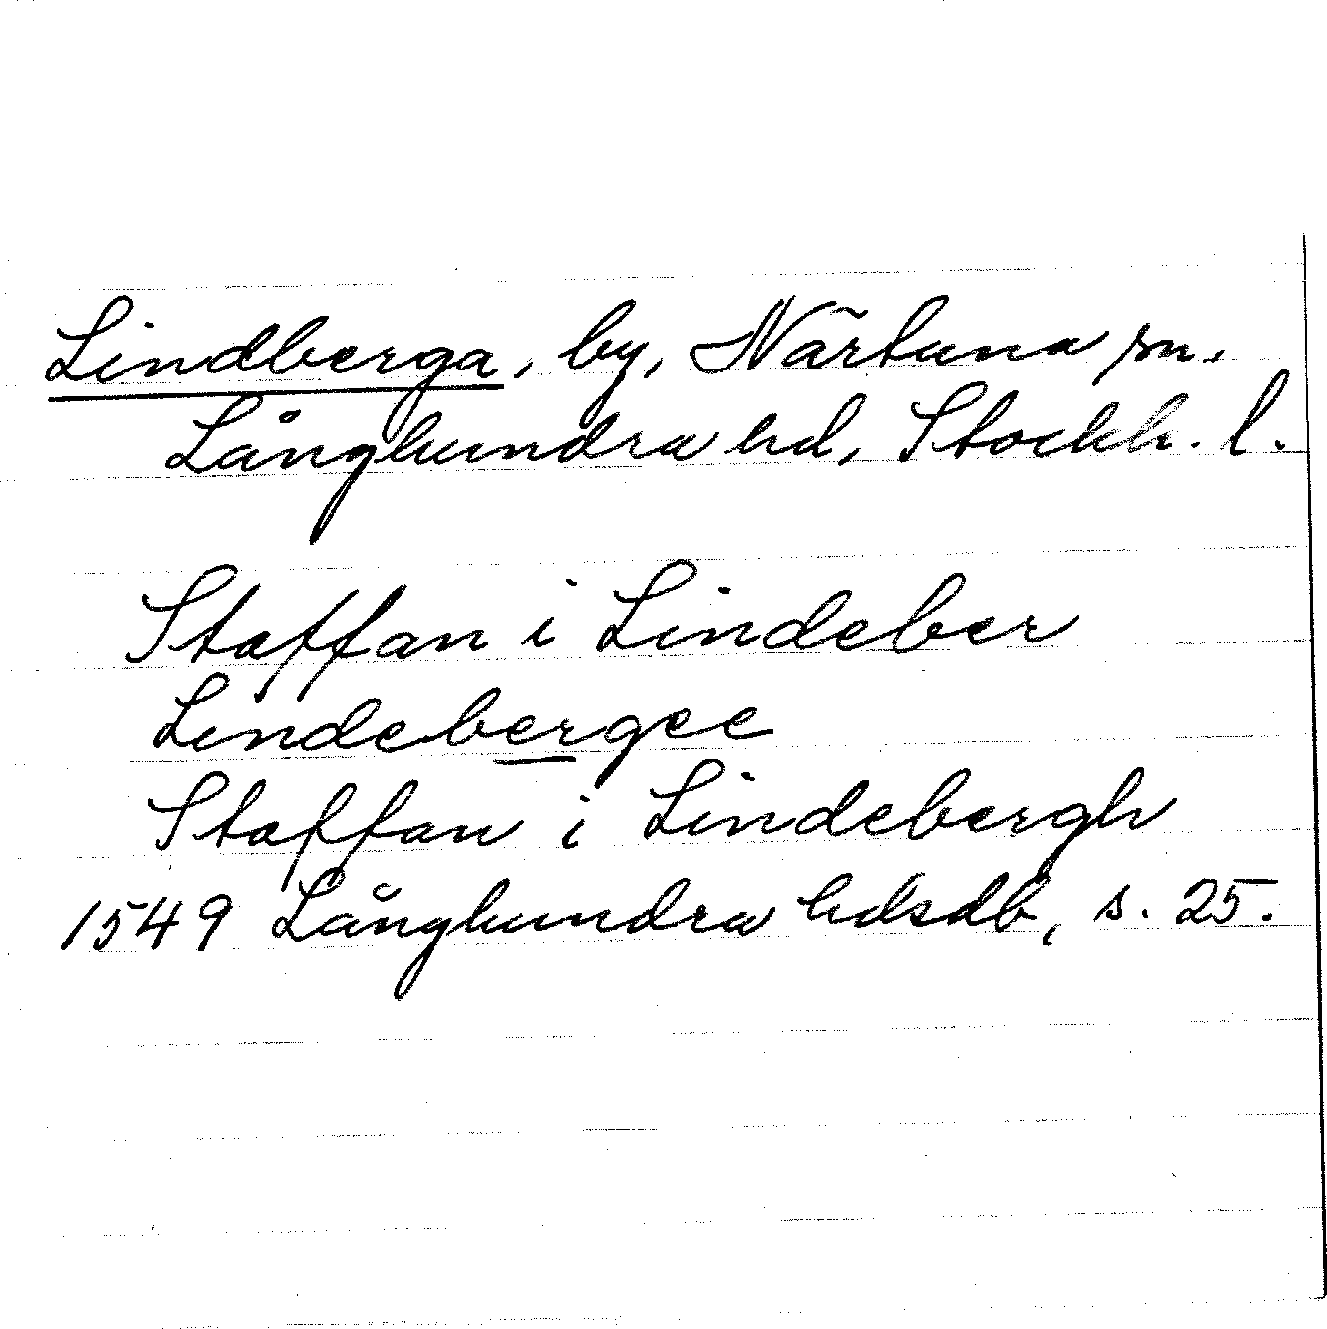 Lindberga, by, Närtuna sn.
Långhundra hd, Stockh. l.
Staffan i Lindeber
Lindebergee
Staffan i Lindebergh
1549 Långhundra hdsdb, s. 25.